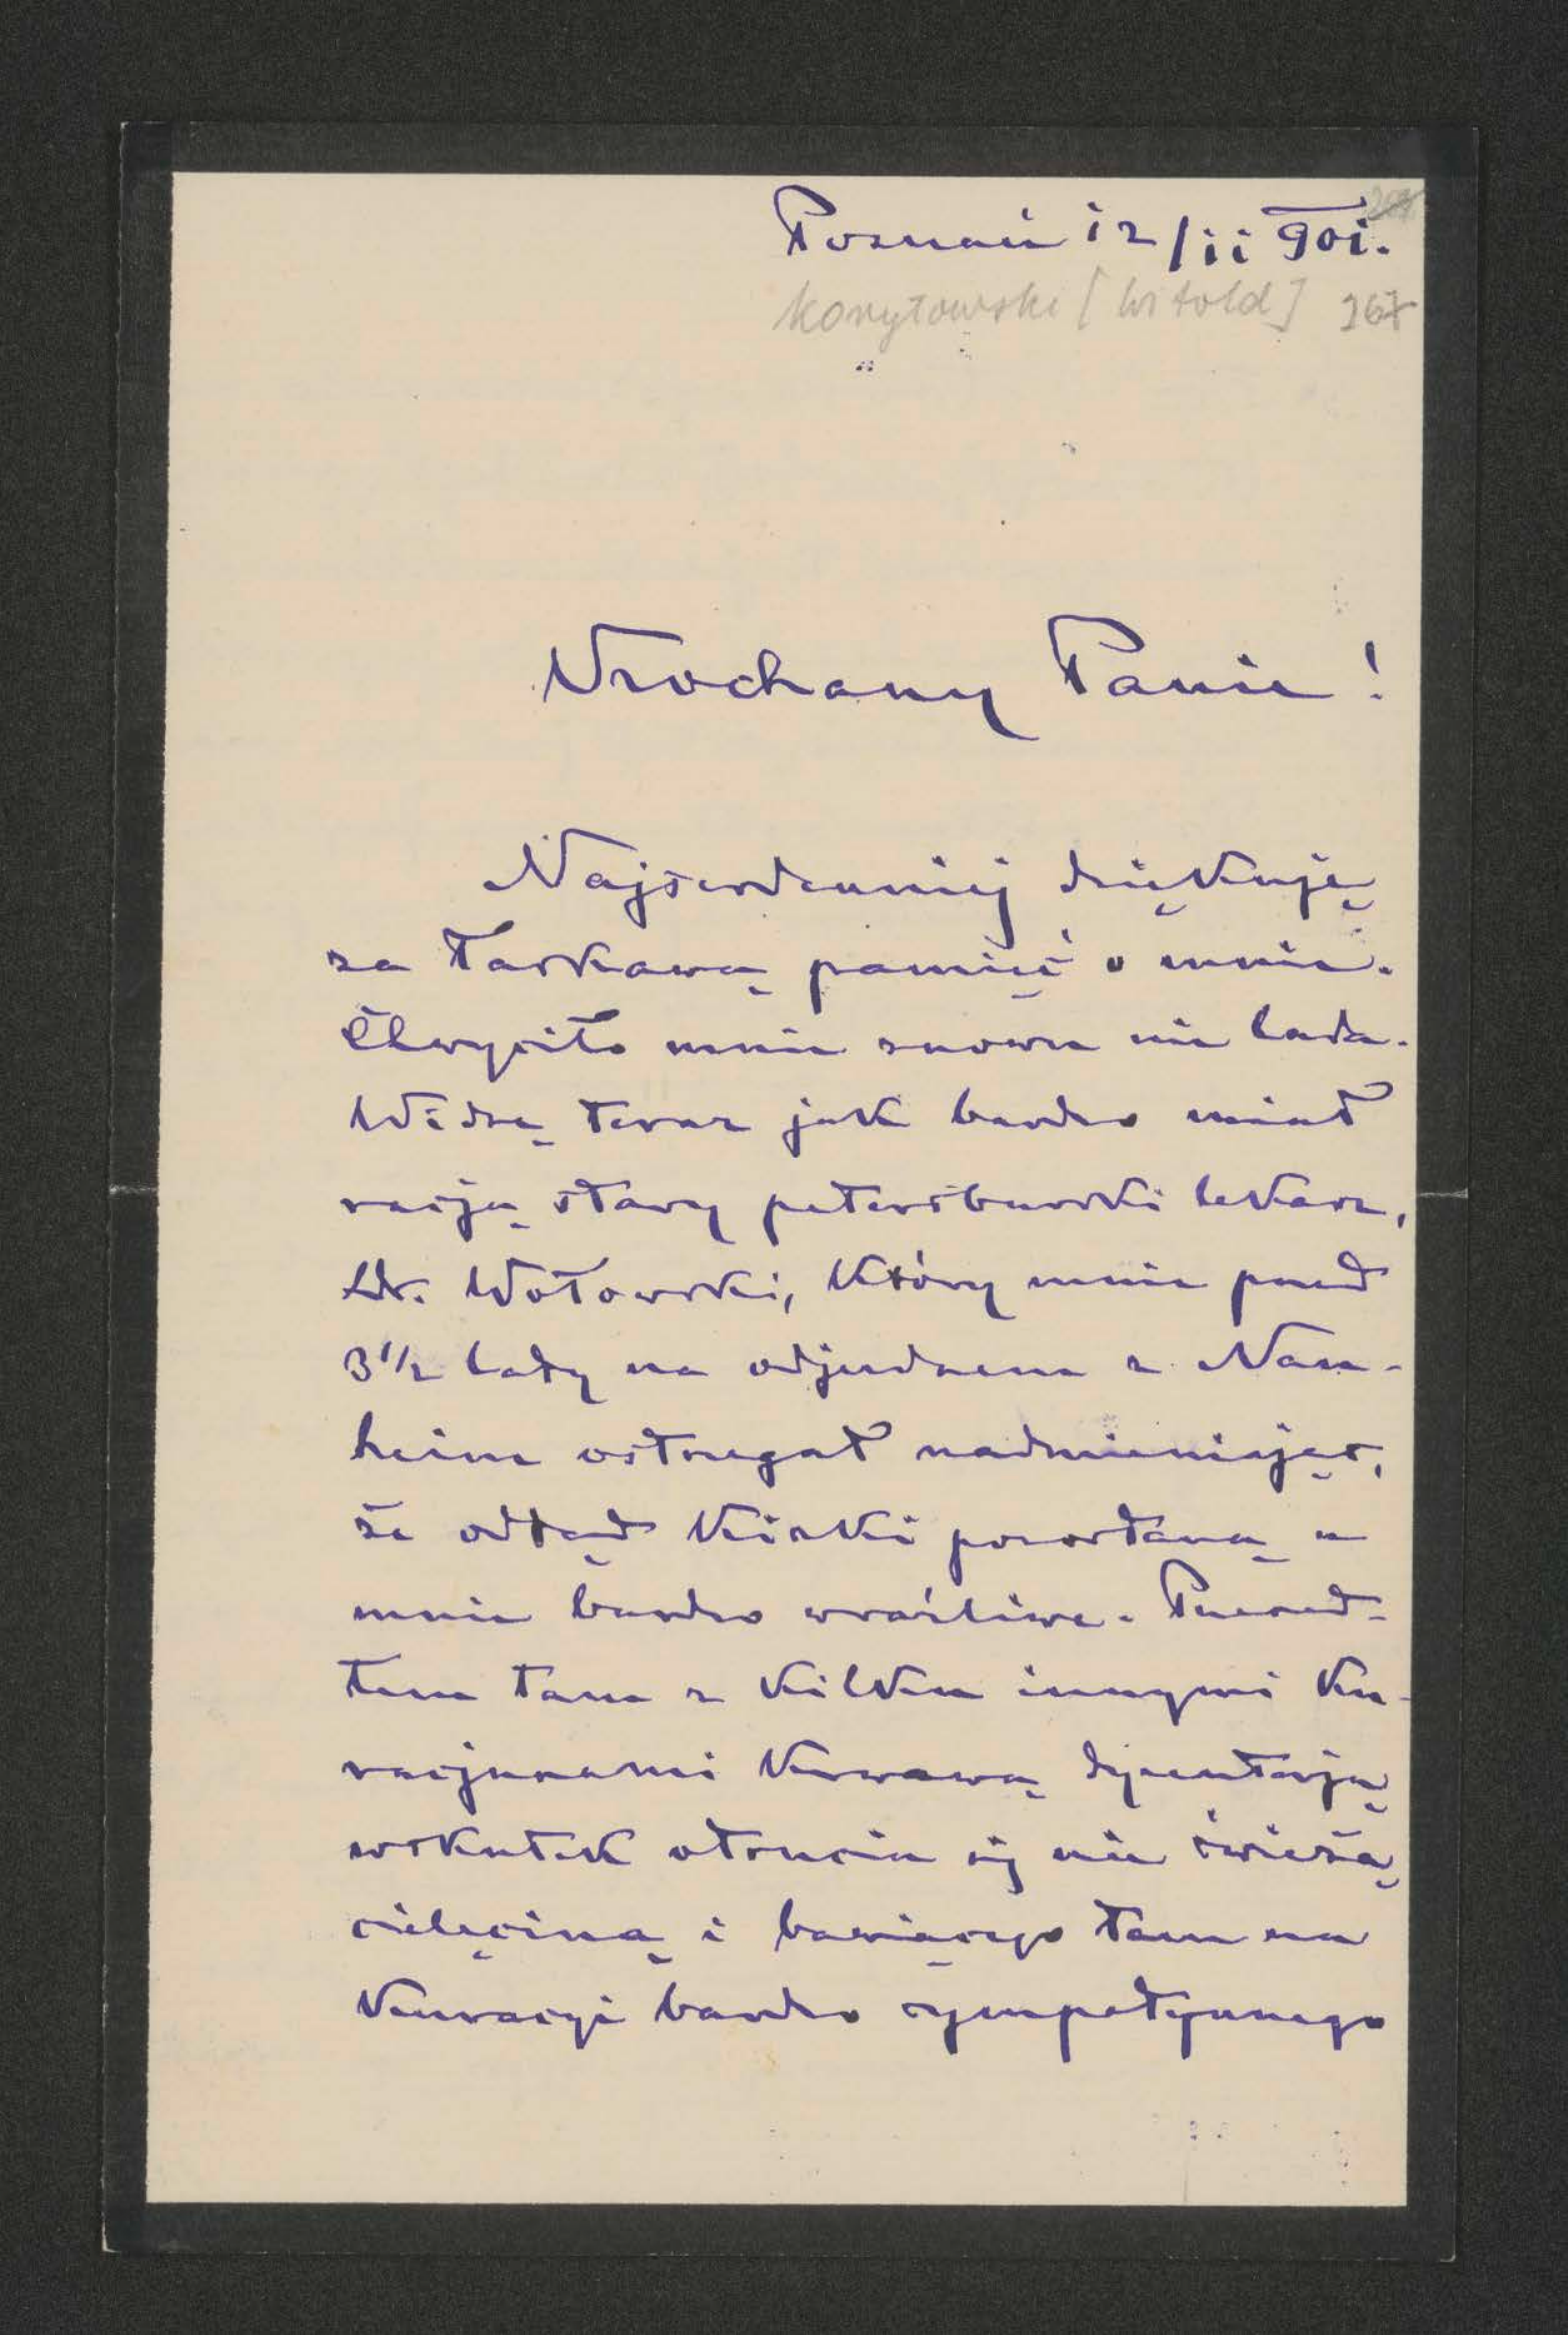 Poznań 12/11 901.
Korytowski [Witold] 267
Kochany Panie!
Najserdeczniej dziękuję
za łaskawą pamięć o mnie.
Chwyciło mnie znowu nie lada.
Widzę teraz jak bardzo miał
racją stary petersburski lekarz,
Dr. Wołowski, który mnie przed
3 1/2 laty na odjezdnem z Nau-
heim ostrzegał nadmieniając,
że odtąd kiszki pozostaną u
mnie bardzo wrażliwe. Przesze-
tem tam z kilku innymi ku-
racjuszami krwawą dyzenterją
wskutek otrucia się nie świeżą
cielęciną i bawiącego tam na
kuracyi bardzo sympatycznego